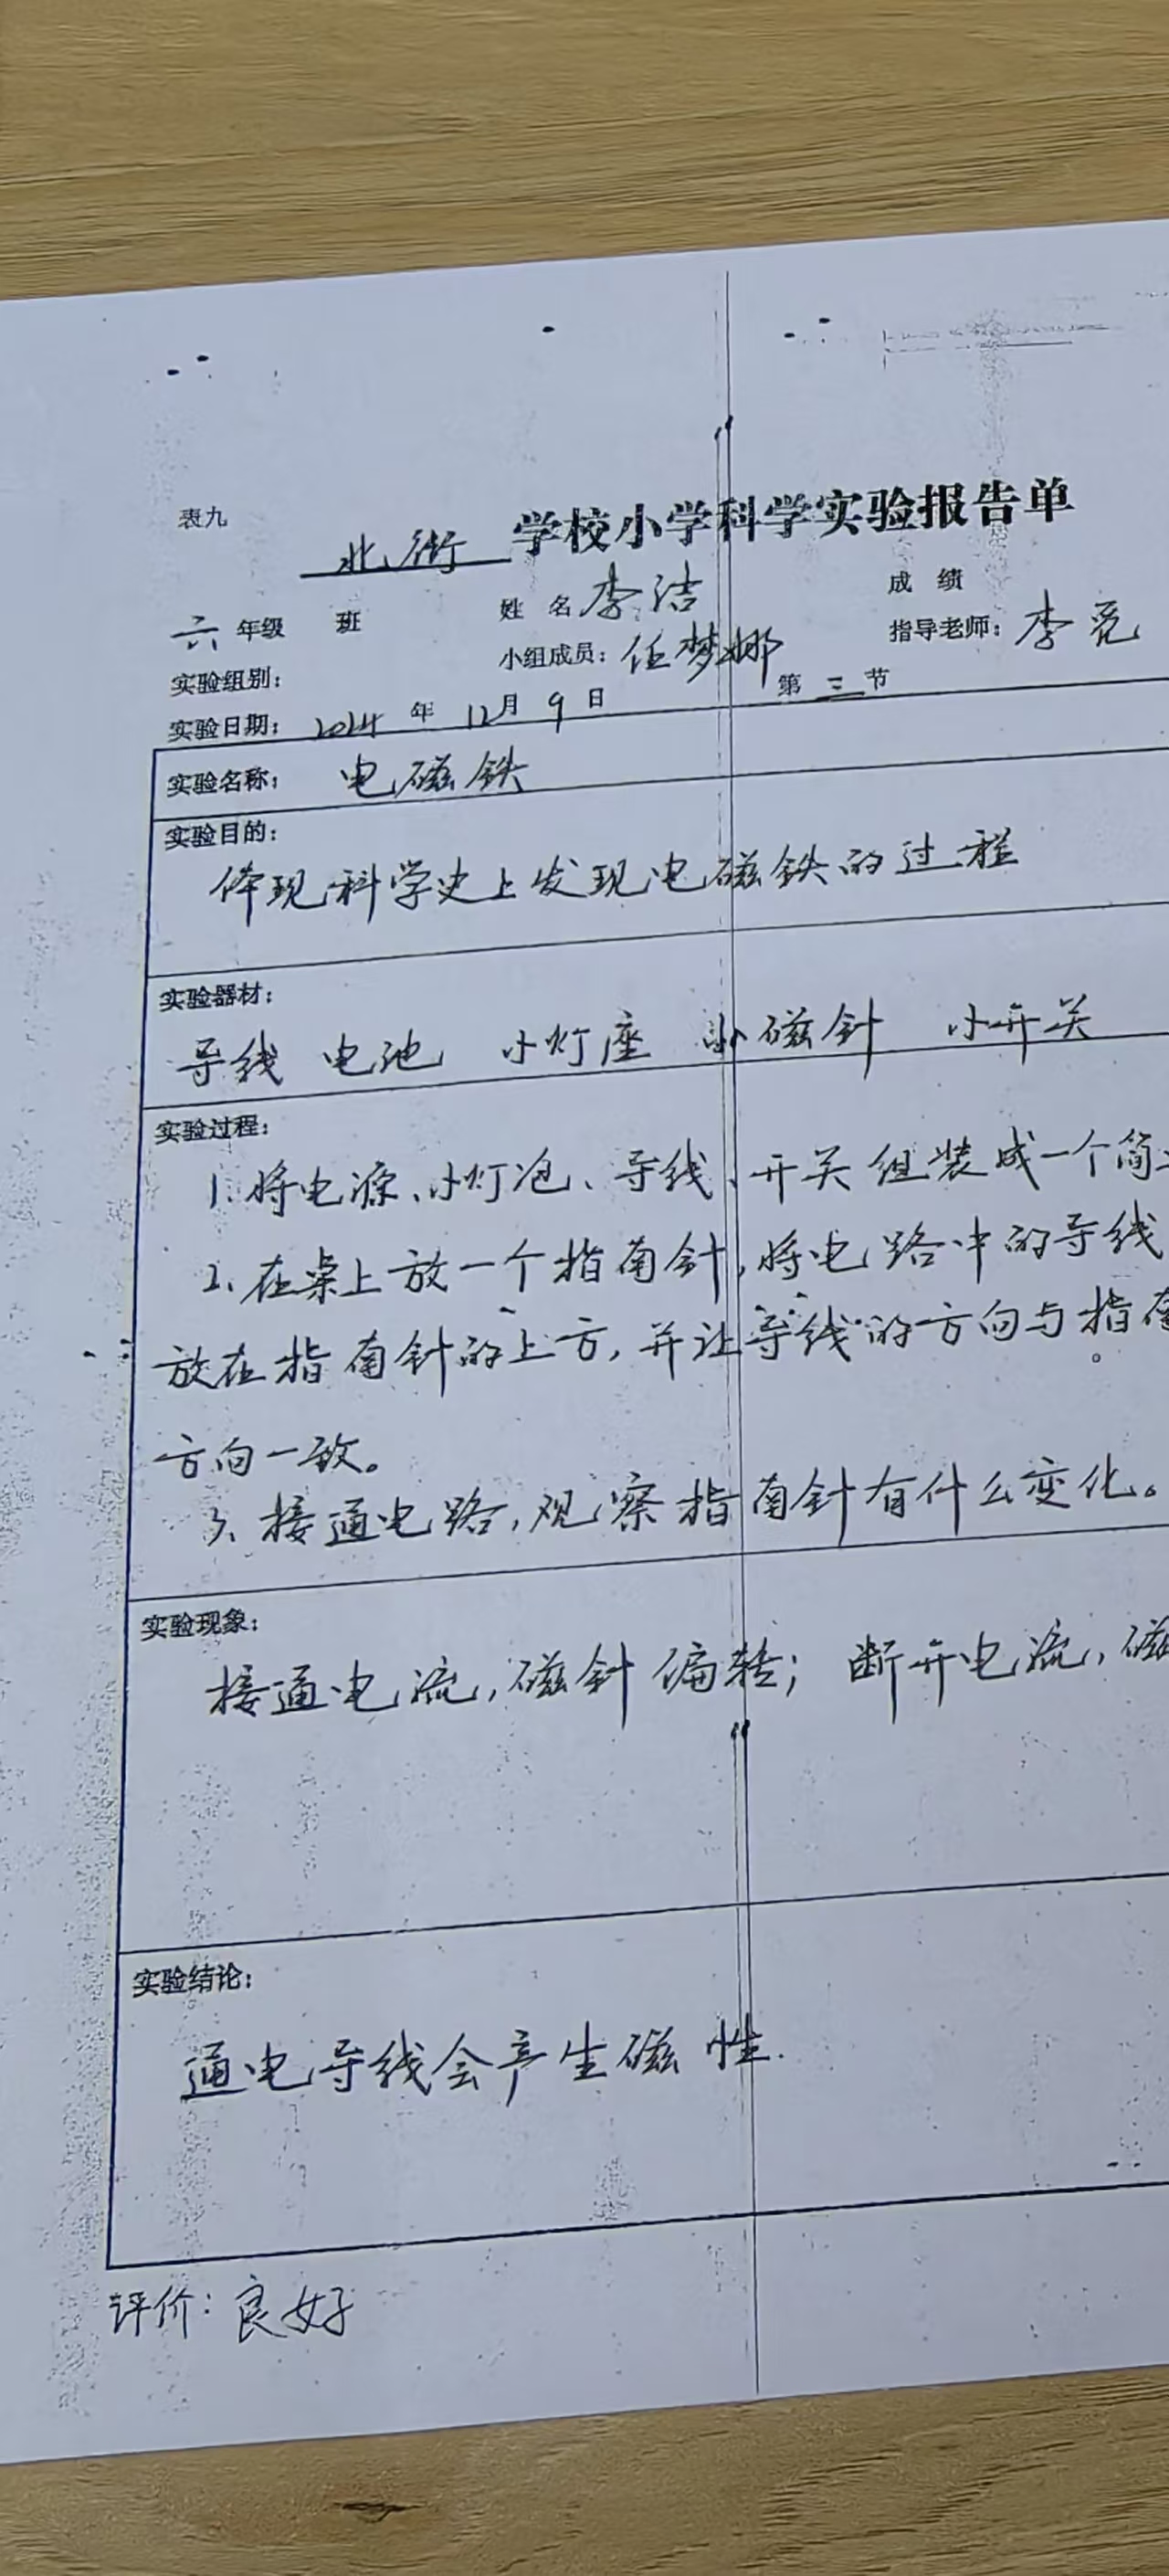 表九
北街 学校小学科学实验报告单
六 年级 班 姓 名 李洁 成 绩
实验组别： 小组成员：任梦娜 指导老师：李亮
实验日期：2024 年 12月 9 日 第 三 节
实验名称： 电磁铁
实验目的：
体现科学史上发现电磁铁的过程
实验器材：
导线 电池 小灯座 小磁针 小开关
实验过程：
1. 将电源、小灯泡、导线、开关组装成一个简
2、在桌上放一个指南针，将电路中的导线
放在指南针的上方，并让导线的方向与指南
方向一致。
3、接通电路，观察指南针有什么变化。
实验现象：
接通电流，磁针偏转；断开电流，磁
实验结论：
通电导线会产生磁性.
评价：良好